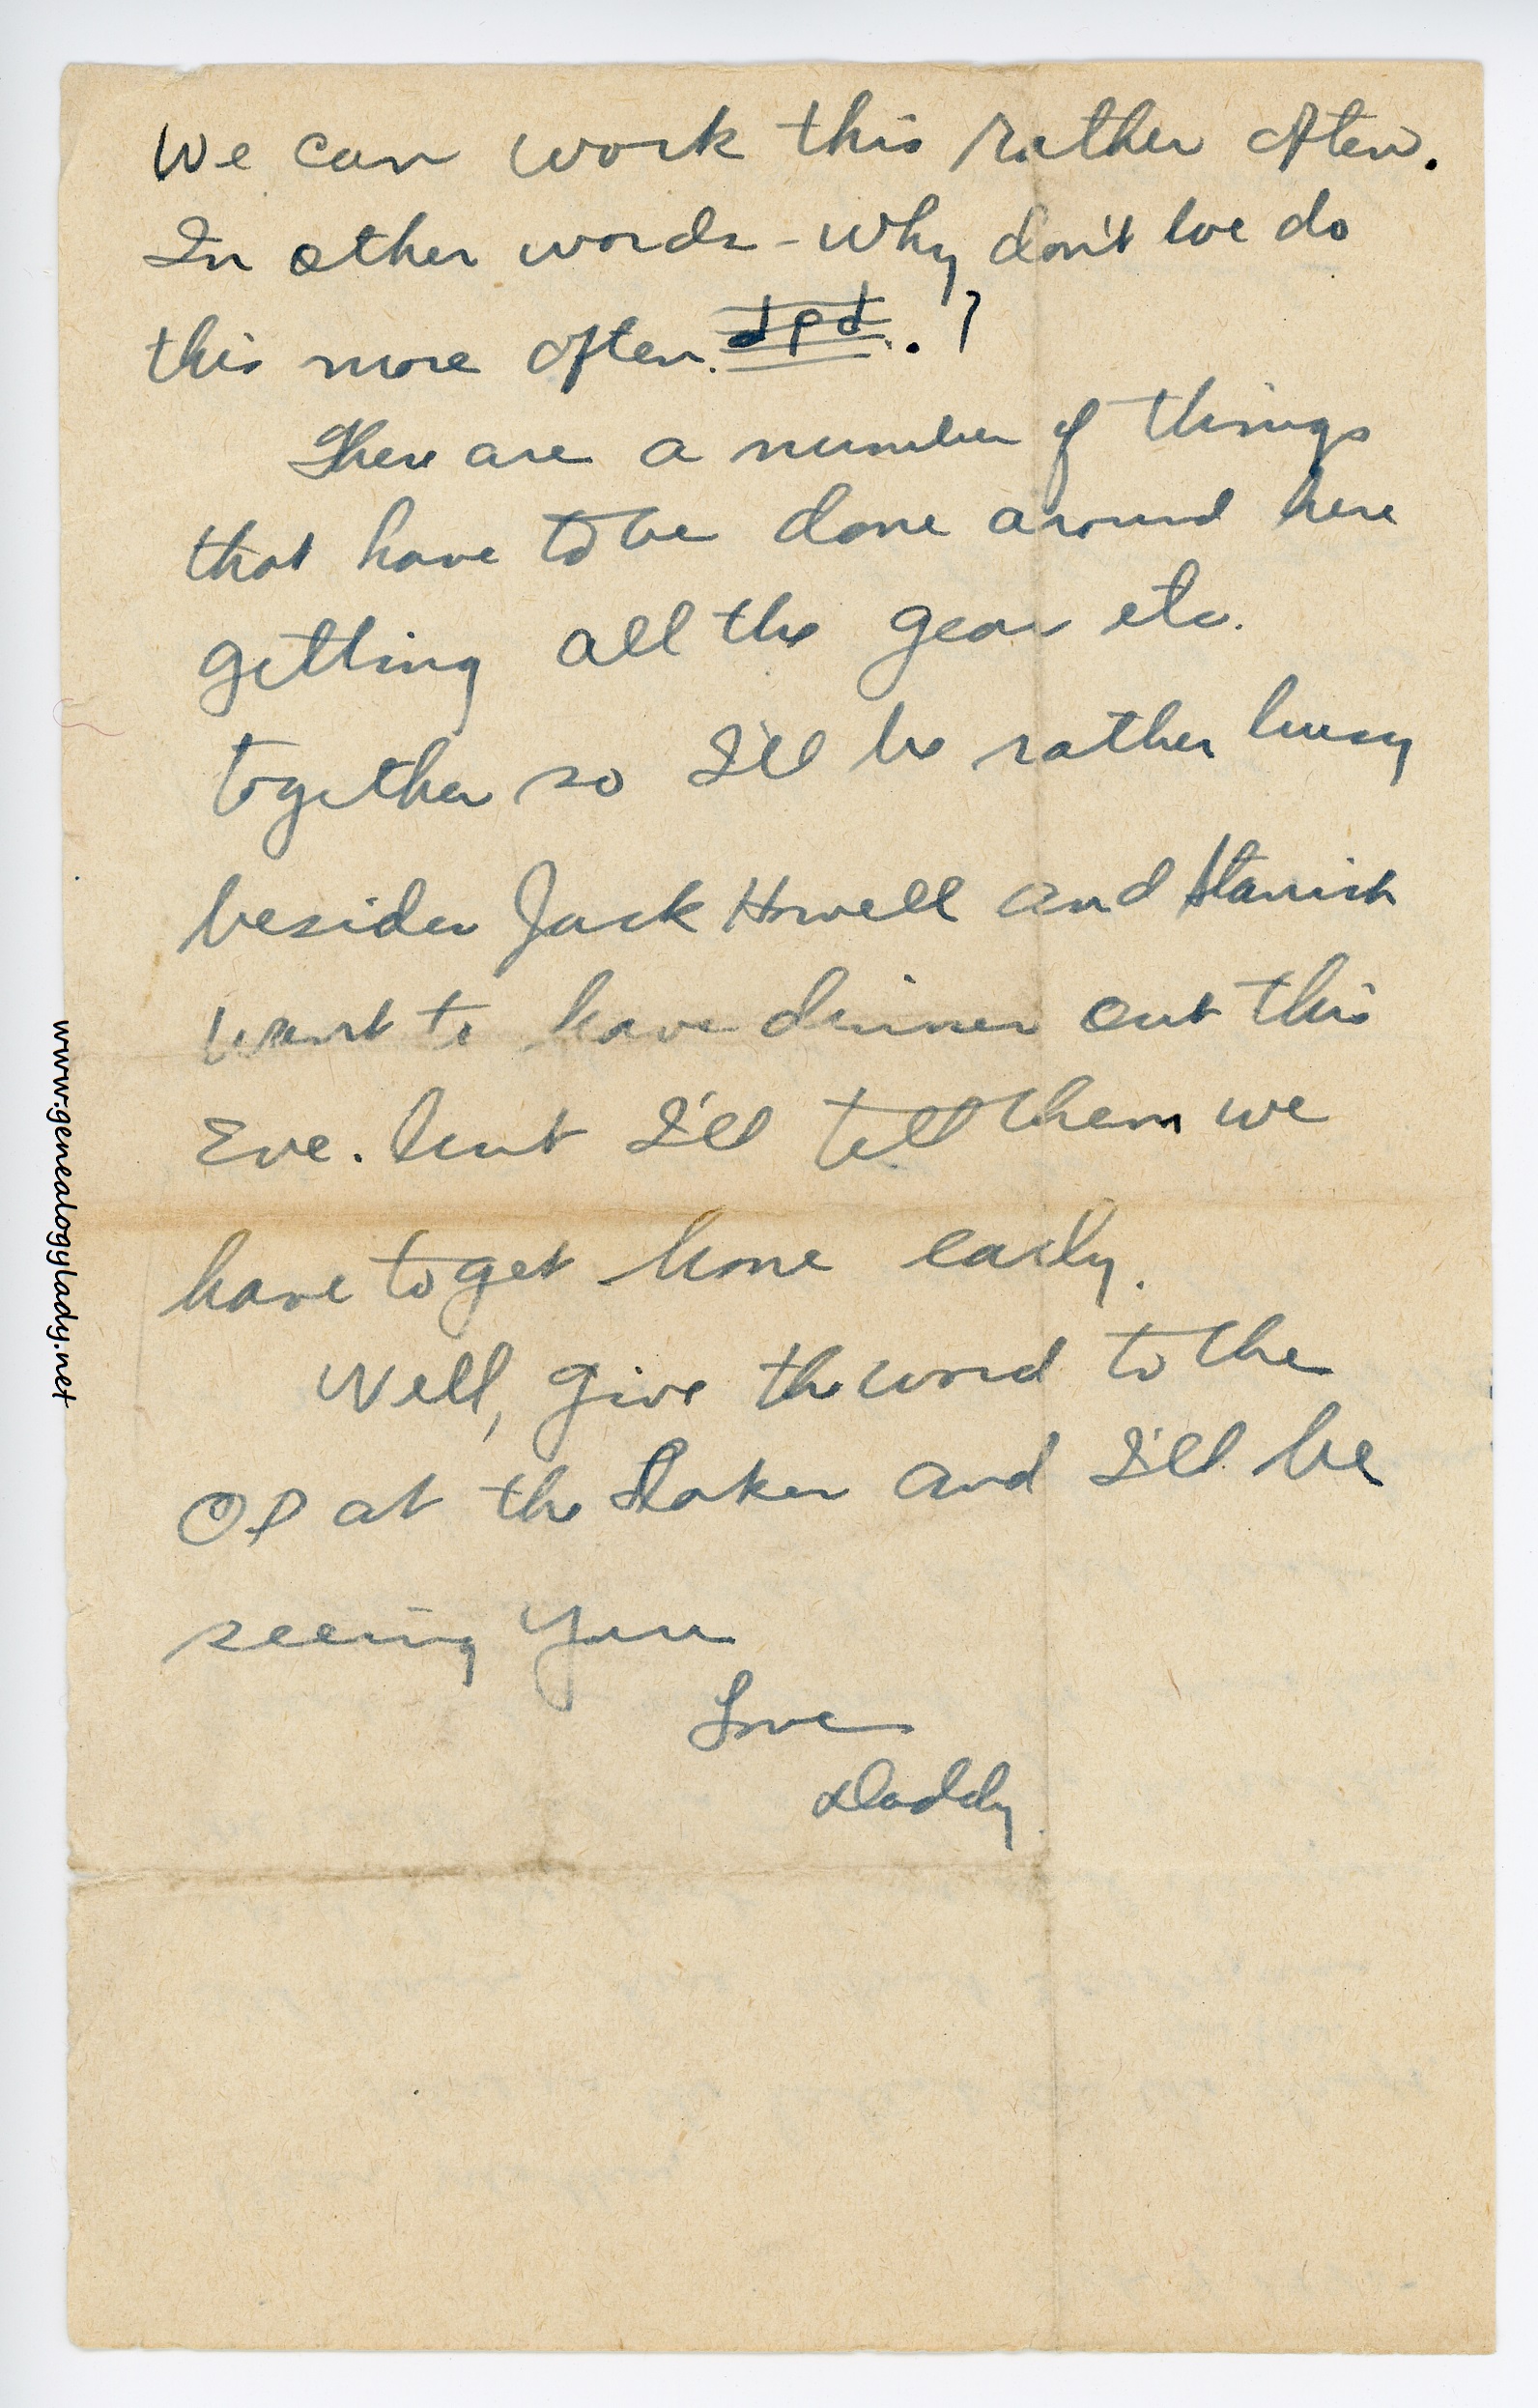 We can work this rather often.
In other words - why don't we do
this more often. ?
There are a number of things
that have to be done around here
getting all the gear etc.
together so I'll be rather busy
besides Jack Howell and
want to have dinner out this
Eve. but I'll tell them we
have to get home early.
Well, give the word to the
at the and I'll be
seeing you
Love
Daddy
www.genealogylady.net